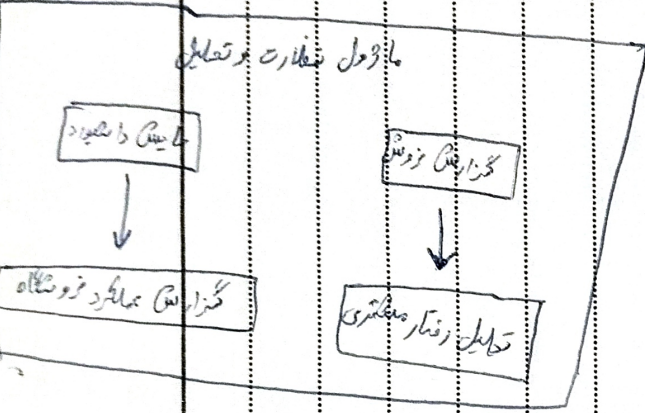 ماژول نظارت و تحلیل
گزارش فروش
نمایش داشبورد
تحلیل رفتار مشتری
گزارش عملکرد فروشگاه